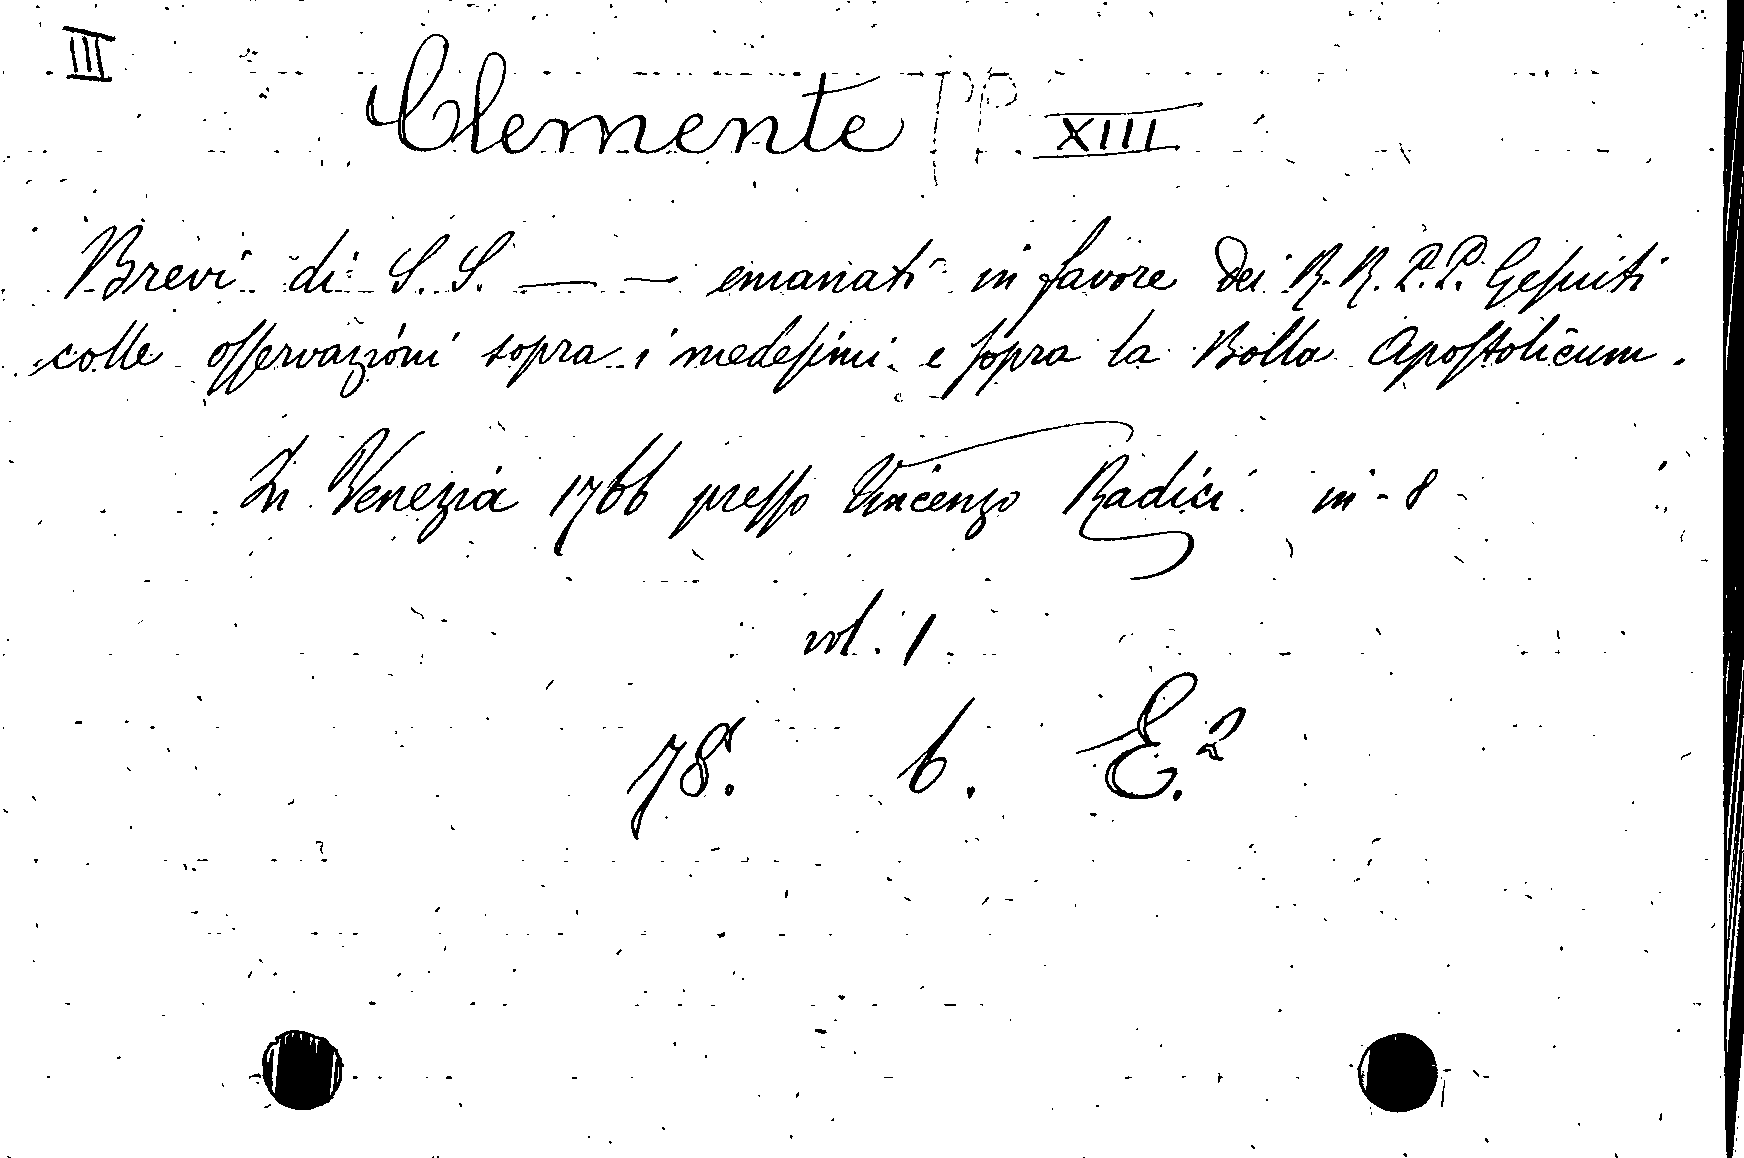 III
Clemente PP. XIII
Brevi di S. S. — — emanati in favore dei R. R. P. P. Gesuiti
colle osservazioni sopra i medesimi e sopra la Bolla Apostolicum.
In Venezia 1766 presso Vincenzo Radici in-8
vol. 1
78. 6. E.2